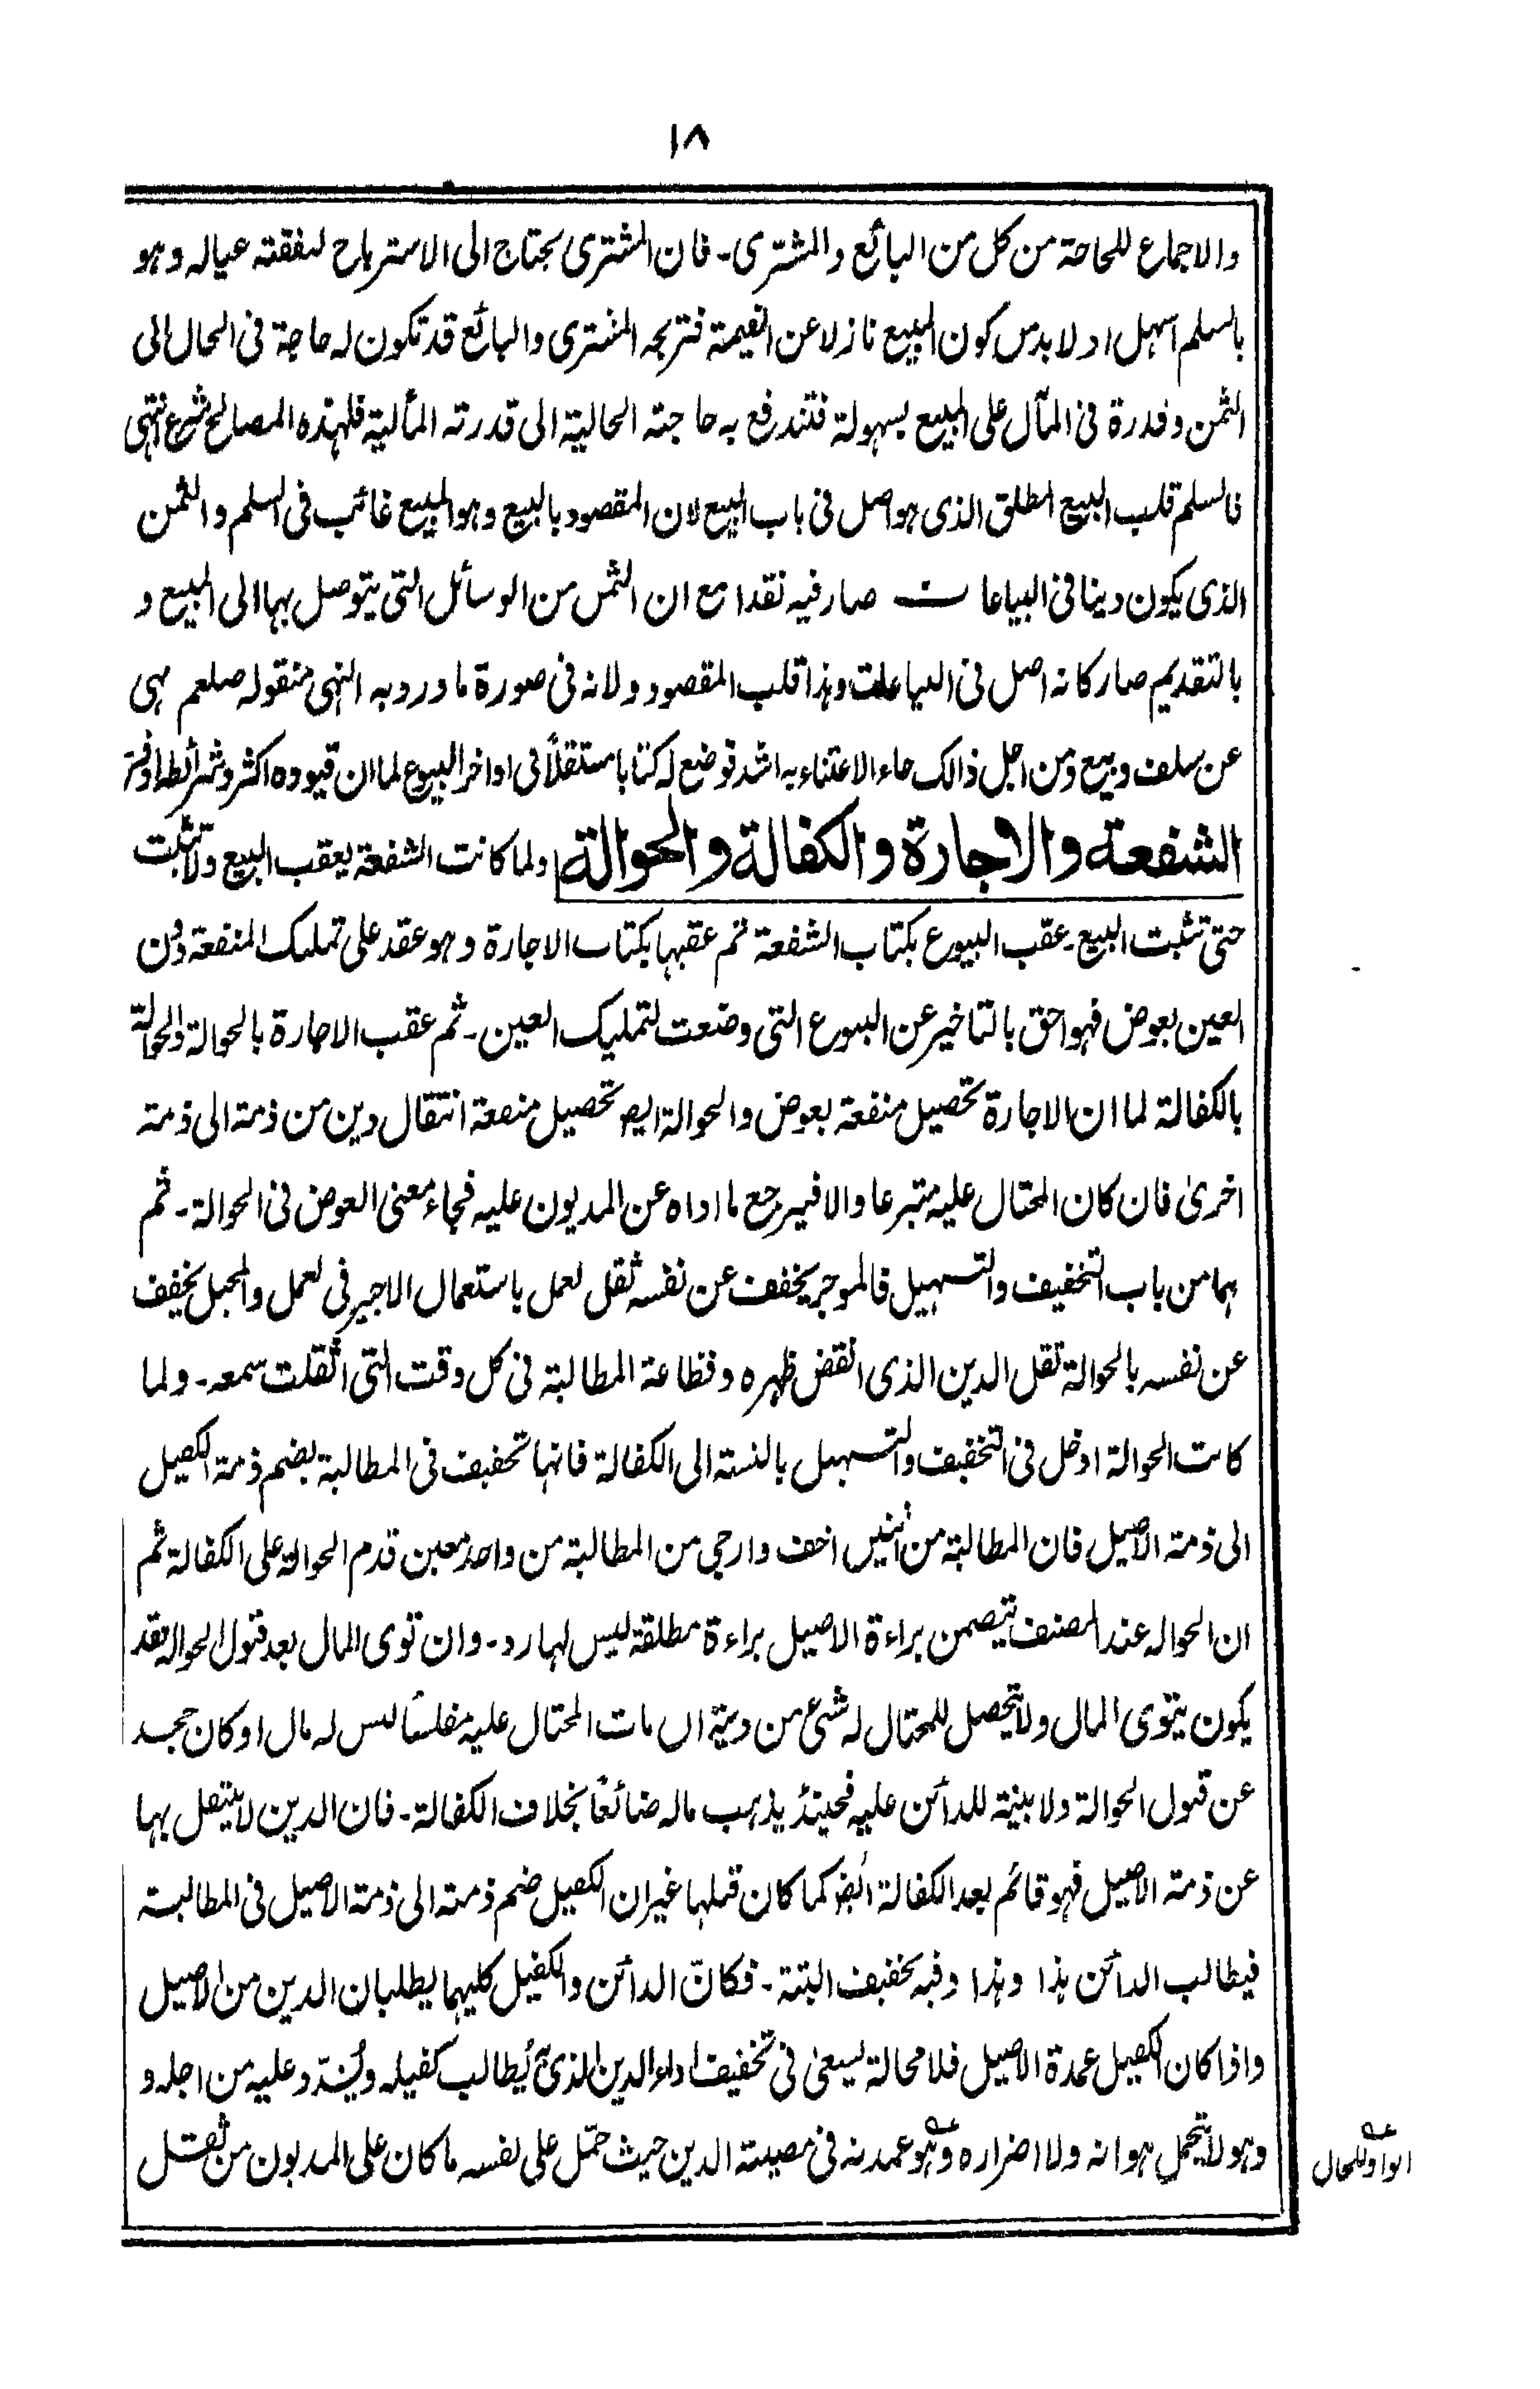 ١٨
والاجماع للحاجة من كل من البائع والمشترى۔ فان المشترى يحتاج الى الاسترباح لنفقته عياله وهو
بالسلم اسهل اذ لا بد من كون المبيع نازلا عن القيمة فتربحه المشترى والبائع قد تكون له حاجة فى الحال الى
الثمن وقدرة فى المآل على المبيع بسهولة فتندفع به حاجته الحالية الى قدرته المآلية فلهذه المصالح شرع انتهى
فالسلم قلب البيع المطلق الذى هو اصل فى باب البيع لان المقصود بالبيع وهو المبيع غائب فى السلم والثمن
الذى يكون دينا فى البياعات صار فيه نقدا مع ان الثمن من الوسائل التى يتوصل بها الى المبيع و
بالتقديم صار كانه اصل فى البياعات وهذا قلب المقصود ولانه فى صورة ما ورد به النهى منقوله صلعم نهى
عن سلف وبيع ومن اجل ذالك جاء الاعتناء به اشد فوضع له كتابا مستقلاً فى اواخر البيوع لما ان قيوده اكثر وشرائطه اوفر
الشفعة والاجارة والكفالة والحوالة ولما كانت الشفعة يعقب البيع ولا تثبت
حتى تثبت البيع۔ عقب البيوع بكتاب الشفعة ثم عقبها بكتاب الاجارة وهو عقد على تمليك المنفعة دون
العين بعوض فهو احق بالتاخير عن البيوع التى وضعت لتمليك العين۔ ثم عقب الاجارة بالحوالة والحوالة
بالكفالة لما ان الاجارة تحصيل منفعة بعوض والحوالة ايضا تحصيل منفعة انتقال دين من ذمة الى ذمة
اخرىٰ فان كان المحتال عليه متبرعا والا فيرجع ما اداه عن المديون عليه فجاء معنى العوض فى الحوالة۔ ثم
هما من باب التخفيف والتسهيل فالموجر يخفف عن نفسه ثقل لعمل باستعمال الاجير فى لعمل والمحيل يخفف
عن نفسه بالحوالة ثقل الدين الذى انقض ظهره وفظاعة المطالبة فى كل وقت التى اثقلت سمعه۔ ولما
كانت الحوالة ادخل فى التخفيف والتسهيل بالنسبة الى الكفالة فانها تخفيف فى المطالبة بضم ذمة الكفيل
الى ذمة الاصيل فان المطالبة من اثنين اخف وارجى من المطالبة من واحد معين قدم الحوالة على الكفالة ثم
ان الحواله عند المصنف يتضمن براءة الاصيل براءة مطلقة ليس لها رد۔ وان توى المال بعد قبول الحوالة فقد
يكون يتوى المال ولا يحصل للمحتال له شئ من دينه ان مات المحتال عليه مفلسًا ليس له مال او كان جحد
عن قبول الحوالة ولا بينة للدائن عليه فحينئذ يذهب ماله ضائعًا بخلاف الكفالة۔ فان الدين لا ينتقل بها
عن ذمة الاصيل فهو قائم بعد الكفالة ايضا كما كان قبلها غير ان الكفيل ضم ذمته الى ذمة الاصيل فى المطالبة
فيطالب الدائن هذا وهذا وفيه تخفيف البتة۔ فكانّ الدائن والكفيل كليهما يطلبان الدين من الاصيل
واذا كان الكفيل عمدة الاصيل فلا محالة يسعىٰ فى تخفيف اداء الدين الذى يُطالب كفيله ويُشدّد عليه من اجله و
وهو لا يتحمل هوانه ولا اضراره وهو عمدته فى مصيبة الدين حيث حمّل على نفسه ما كان على المديون من ثقل
الواو للحال